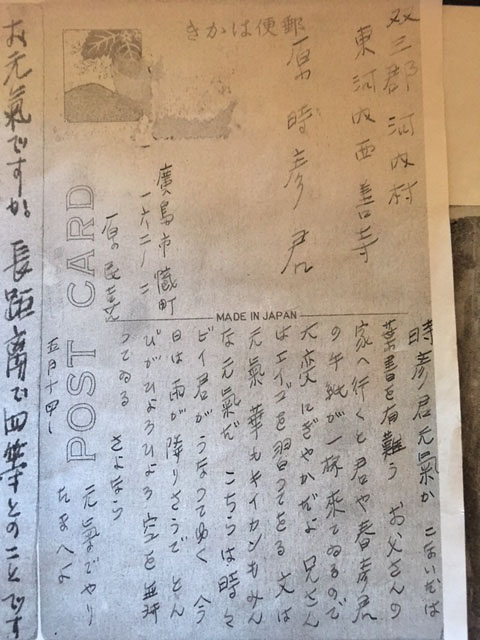 きかは便郵
双三郡 河内村
東河内西善寺
原 時彦 君
廣島市幟町
一六二ノ二
原民喜
POST CARD
MADE IN JAPAN
時彦君元氣か こないだは
葉書を有難う お父さんの
家へ行くと君や春彦君
の手紙が一杯来てゐるので
大変にぎやかだよ 兄さん
はエイゴを習つてをる 文は
元氣 華もキイカンもみん
な元氣だ こちらは時々
ビイ君がうなつてゆく 今
日は雨が降りさうで とん
びがひよろひよろ空を舞
つてゐる さよなら
元氣でやり
たまへよ
五月十四日
お元氣ですか。長距離で とのことです